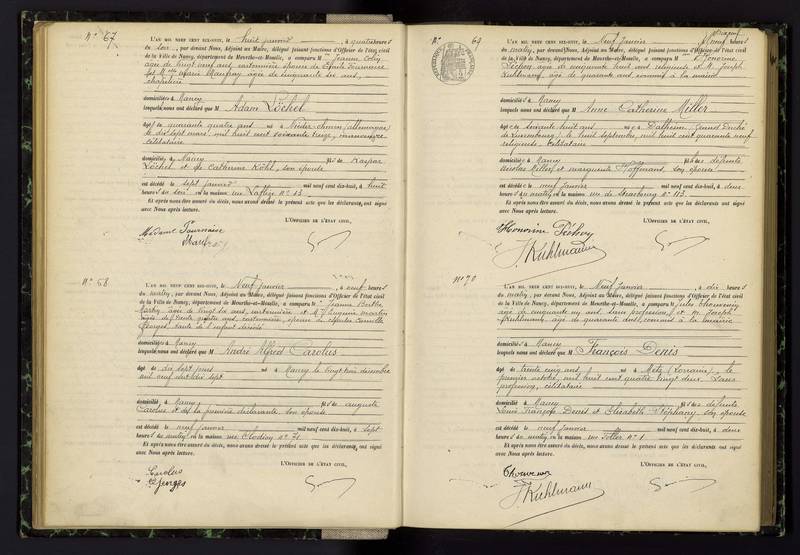 N° 67
L'AN MIL NEUF CENT DIX-HUIT, le huit janvier, à quatre heures
du soir, par devant Nous, Adjoint au Maire, délégué faisant fonctions d'Officier de l'état civil
de la Ville de Nancy, département de Meurthe-et-Moselle, a comparu M Jeanne
âgée de vingt neuf ans, cartonnière épouse de Tournaire
et Marie âgée de cinquante six ans,
domiciliées à Nancy
lesquels nous ont déclaré que M Adam Löchel
âgé de quarante quatre ans né à Nieder (allemagne)
le dix sept mars mil huit cent soixante treize, manœuvre
célibataire
domicilié à Nancy fils de Kaspar
Löchel et de Catherine Köhl, son épouse
est décédé le sept janvier mil neuf cent dix-huit, à huit
heures du soir en la maison rue n° 13
Et après nous être assuré du décès, nous avons dressé le présent acte que les déclarants ont signé
avec Nous après lecture.
L'OFFICIER DE L'ÉTAT CIVIL,
Madame Tournaire
N° 68
L'AN MIL NEUF CENT DIX-HUIT, le Neuf janvier, à neuf heures
du matin, par devant Nous, Adjoint au Maire, délégué faisant fonctions d'Officier de l'état civil
de la Ville de Nancy, département de Meurthe-et-Moselle, a comparu M Jeanne Berthe
âgée de vingt six ans, cartonnière et Eugénie Martin
âgée de trente quatre ans, cartonnière, épouse de Camille
Georges, tante de l'enfant décédé
domiciliées à Nancy
lesquels nous ont déclaré que M André Alfred Carolus
âgé de dix sept jours né à Nancy le vingt trois décembre
mil neuf cent dix sept
domicilié à Nancy fils de auguste
Carolus et de la première déclarante, son épouse
est décédé le neuf janvier mil neuf cent dix-huit, à sept
heures du matin en la maison rue Clodion n° 71
Et après nous être assuré du décès, nous avons dressé le présent acte que les déclarants ont signé
avec Nous après lecture.
L'OFFICIER DE L'ÉTAT CIVIL,
Carolus
Georges
N° 69
L'AN MIL NEUF CENT DIX-HUIT, le Neuf janvier, à neuf heures
du matin, par devant Nous, Adjoint au Maire, délégué faisant fonctions d'Officier de l'état civil
de la Ville de Nancy, département de Meurthe-et-Moselle, a comparu M Honorine
âgée de cinquante huit ans religieuse et M. Joseph
Kuhlmann, âgé de quarante ans commis à la mairie
domiciliés à Nancy
lesquels nous ont déclaré que M Anne Catherine Miller
âgée de soixante huit ans née à Dalheim (Grand Duché
de Luxembourg), le huit septembre mil huit cent quarante neuf
religieuse, célibataire
domiciliée à Nancy fille de défunts
Nicolas Miller et marguerite Hoffmann, son épouse
est décédée le neuf janvier mil neuf cent dix-huit, à deux
heures du matin en la maison rue de Strasbourg n° 113
Et après nous être assuré du décès, nous avons dressé le présent acte que les déclarants ont signé
avec Nous après lecture.
L'OFFICIER DE L'ÉTAT CIVIL,
Honorine
J. Kuhlmann
N° 70
L'AN MIL NEUF CENT DIX-HUIT, le Neuf janvier, à dix heures
du matin, par devant Nous, Adjoint au Maire, délégué faisant fonctions d'Officier de l'état civil
de la Ville de Nancy, département de Meurthe-et-Moselle, a comparu M Jules Thouvenin
âgé de cinquante un ans, sans profession, et M. Joseph
Kuhlmann, âgé de quarante ans, commis à la mairie
domiciliés à Nancy
lesquels nous ont déclaré que M François Denis
âgé de trente cinq ans né à Metz (Lorraine) le
premier octobre, mil huit cent quatre vingt deux, sans
profession, célibataire
domicilié à Nancy fils de défunts
Louis François Denis et Elisabeth Stéphany son épouse
est décédé le neuf janvier mil neuf cent dix-huit, à deux
heures du matin en la maison rue n° 1
Et après nous être assuré du décès, nous avons dressé le présent acte que les déclarants ont signé
avec Nous après lecture.
L'OFFICIER DE L'ÉTAT CIVIL,
Thouvenin
J. Kuhlmann